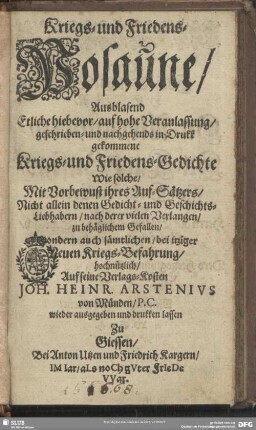 Kriegs- und Friedens-
Posaune/
Ausblasend
Etliche hiebevor/auf hohe Veranlassung/
geschrieben/und nachgehends in Drukk
gekommene
Kriegs- und Friedens-Gedichte
Wie solche/
Mit Vorbewust ihres Auf-Sätzers/
Nicht allein denen Gedicht- und Geschichts-
Liebhabern/nach derer vielen Verlangen/
zu behäglichem Gefallen/
Sondern auch sämtlichen/bei itziger
Neuen Kriegs-Befahrung/
hochnützlich/
Auf seine Verlags-Kosten
JOH. HEINR. ARSTENIVS
von Münden/P.C.
wieder ausgegeben und drukken lassen
Zu
Giessen/
Bei Anton Utzen und Friedrich Kargern/
IM Iar/aLs noCh gVter FrIeDe
VVar.
1668.
SLUB
DFG